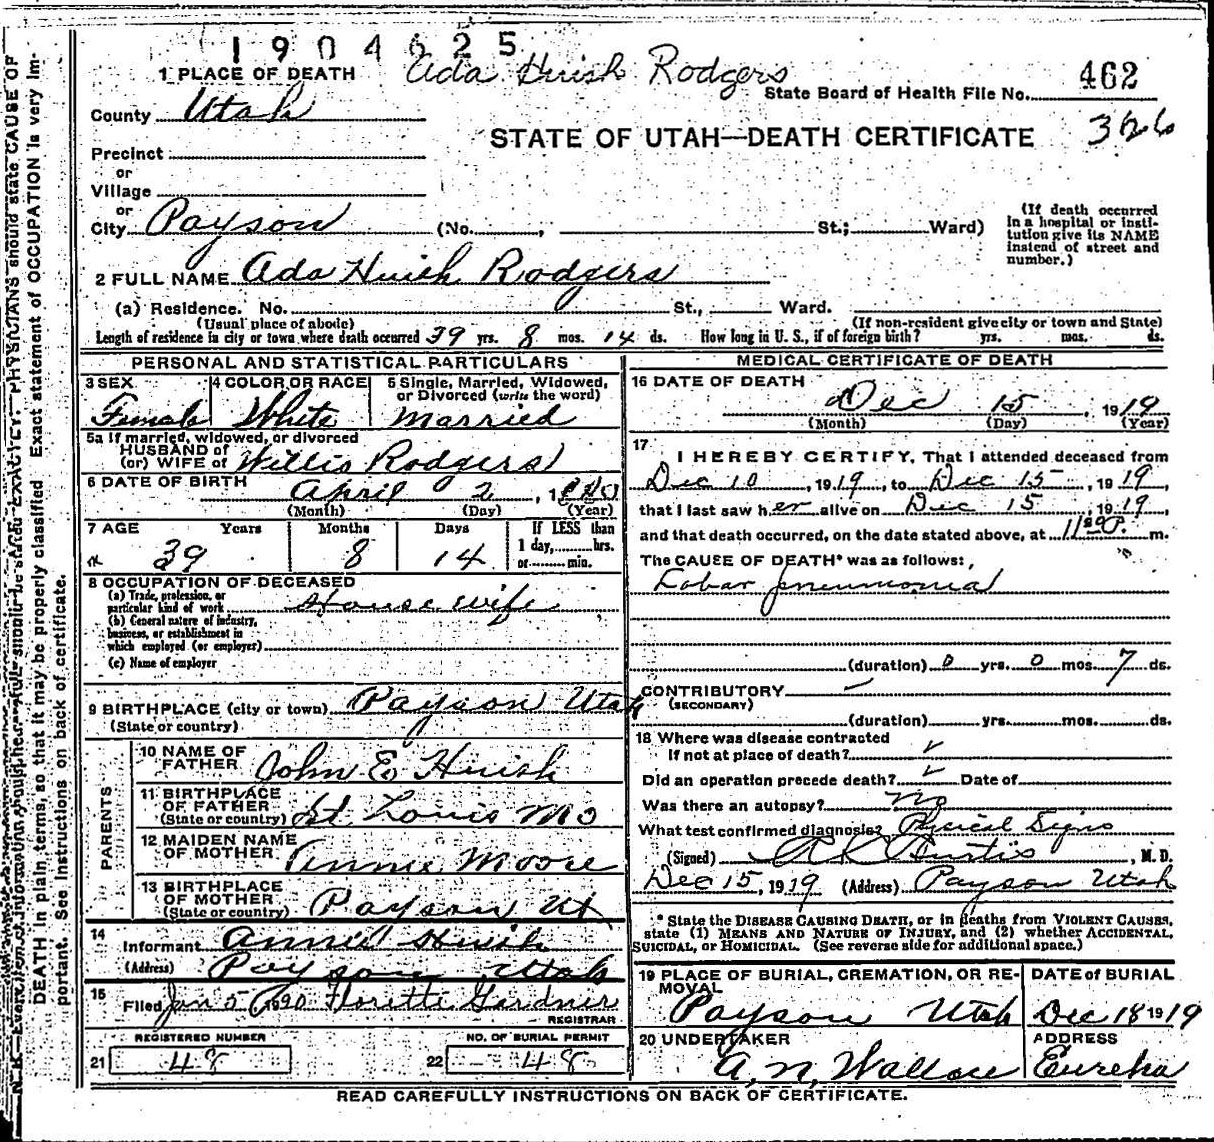 1904625
Ada Huish Rodgers
1 PLACE OF DEATH
State Board of Health File No. 462
County Utah
326
STATE OF UTAH—DEATH CERTIFICATE
Precinct
or
Village
or
City Payson (No. , St.; Ward)
(If death occurred in a hospital or institution give its NAME instead of street and number.)
2 FULL NAME Ada Huish Rodgers
(a) Residence. No. St., Ward.
(Usual place of abode) (If non-resident give city or town and State)
Length of residence in city or town where death occurred 39 yrs. 8 mos. 14 ds. How long in U. S., if of foreign birth? yrs. mos. ds.
PERSONAL AND STATISTICAL PARTICULARS
3 SEX 4 COLOR OR RACE 5 Single, Married, Widowed,
or Divorced (write the word)
Female White Married
5a If married, widowed, or divorced
HUSBAND of
(or) WIFE of Willis Rodgers
6 DATE OF BIRTH April 2, 1880
(Month) (Day) (Year)
7 AGE Years Months Days If LESS than
1 day, hrs.
or min.
39 8 14
8 OCCUPATION OF DECEASED
(a) Trade, profession, or
particular kind of work House wife
(b) General nature of industry,
business, or establishment in
which employed (or employer)
(c) Name of employer
9 BIRTHPLACE (city or town) Payson Utah
(State or country)
PARENTS
10 NAME OF
FATHER John E Huish
11 BIRTHPLACE
OF FATHER
(State or country) St Louis Mo
12 MAIDEN NAME
OF MOTHER Annie Moore
13 BIRTHPLACE
OF MOTHER
(State or country) Payson Ut
14
Informant Annie Huish
(Address) Payson Utah
15
Filed Jan 5 1920 Florette Gardner
REGISTRAR
REGISTERED NUMBER NO. OF BURIAL PERMIT
21 48 22 48
MEDICAL CERTIFICATE OF DEATH
16 DATE OF DEATH
Dec 15, 1919
(Month) (Day) (Year)
17
I HEREBY CERTIFY, That I attended deceased from
Dec 10, 1919, to Dec 15, 1919,
that I last saw her alive on Dec 15, 1919,
and that death occurred, on the date stated above, at 11 30 P. m.
The CAUSE OF DEATH* was as follows:
Lobar pneumonia
(duration) 0 yrs. 0 mos. 7 ds.
CONTRIBUTORY
(SECONDARY)
(duration) yrs. mos. ds.
18 Where was disease contracted
If not at place of death? ✓
Did an operation precede death? ✓ Date of
Was there an autopsy? No
What test confirmed diagnosis? Physical Signs
(Signed) A L Curtis, M.D.
Dec 15, 1919 (Address) Payson Utah
* State the DISEASE CAUSING DEATH, or in deaths from VIOLENT CAUSES,
state (1) MEANS AND NATURE OF INJURY, and (2) whether ACCIDENTAL,
SUICIDAL, or HOMICIDAL. (See reverse side for additional space.)
19 PLACE OF BURIAL, CREMATION, OR RE-
MOVAL
DATE of BURIAL
Payson Utah Dec 18 1919
20 UNDERTAKER ADDRESS
A, N, Wallace Eureka
READ CAREFULLY INSTRUCTIONS ON BACK OF CERTIFICATE.
PHYSICIANS should state CAUSE OF
DEATH in plain terms, so that it may be properly classified. Exact statement of OCCUPATION is very Im-
portant. See Instructions on back of certificate.